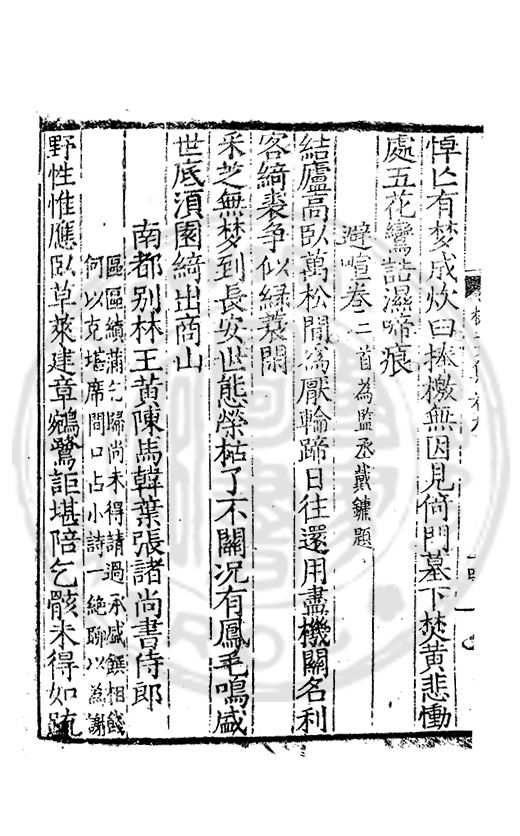 悼亡有梦成炊臼捧檄無因見倚門墓下焚黄悲慟
處五花鸞誥濕啼痕
避喧卷二首為監丞戴鏞題
結廬高臥萬松間為厭輪蹄日往還用盡機關名利
客綺裘争似緑蓑閑
采芝無梦到長安世態榮枯了不關况有鳳毛鳴盛
世底湏園綺出商山
南都别林王黄陳馬韓葉張諸尚書侍郎
區區續蒲乞歸尚未得請過承盛饌相餞
何以克堪席間口占小詩一絶聊以為謝
野性惟應臥草萊建章鵷鷺詎堪陪乞骸未得如䟽